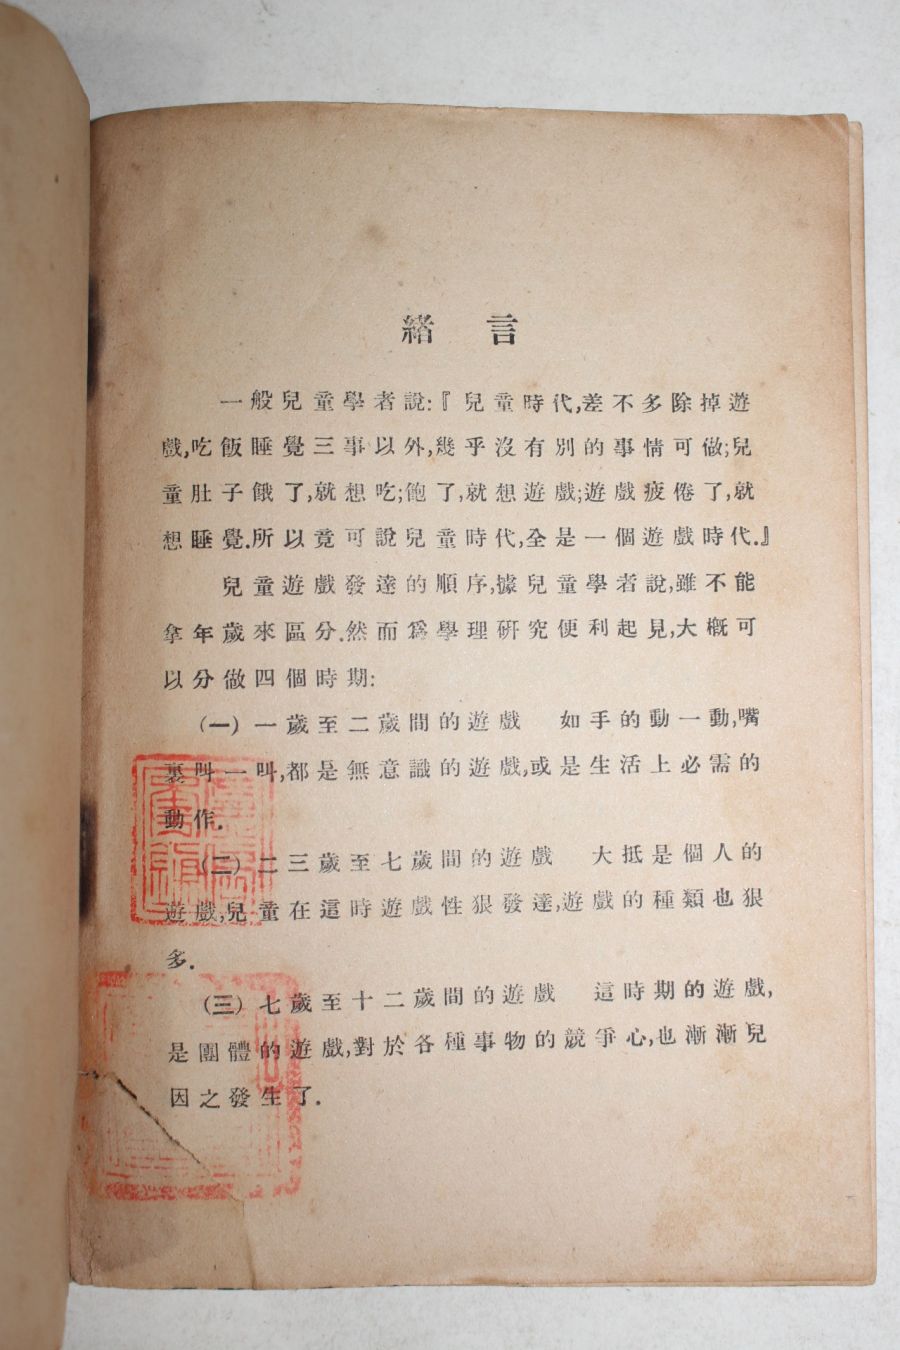 緒言
一般兒童學者說:『兒童時代,差不多除掉遊
戲,吃飯睡覺三事以外,幾乎沒有別的事情可做;兒
童肚子餓了,就想吃;飽了,就想遊戲;遊戲疲倦了,就
想睡覺.所以竟可說兒童時代,全是一個遊戲時代.』
兒童遊戲發達的順序,據兒童學者說,雖不能
拿年歲來區分.然而爲學理研究便利起見,大槪可
以分做四個時期:
(一)一歲至二歲間的遊戲 如手的動一動,嘴
裏叫一叫,都是無意識的遊戲,或是生活上必需的
動作.
(二)二三歲至七歲間的遊戲 大抵是個人的
遊戲,兒童在這時遊戲性狠發達,遊戲的種類也狠
多.
(三)七歲至十二歲間的遊戲 這時期的遊戲,
是團體的遊戲,對於各種事物的競爭心,也漸漸兒
因之發生了.